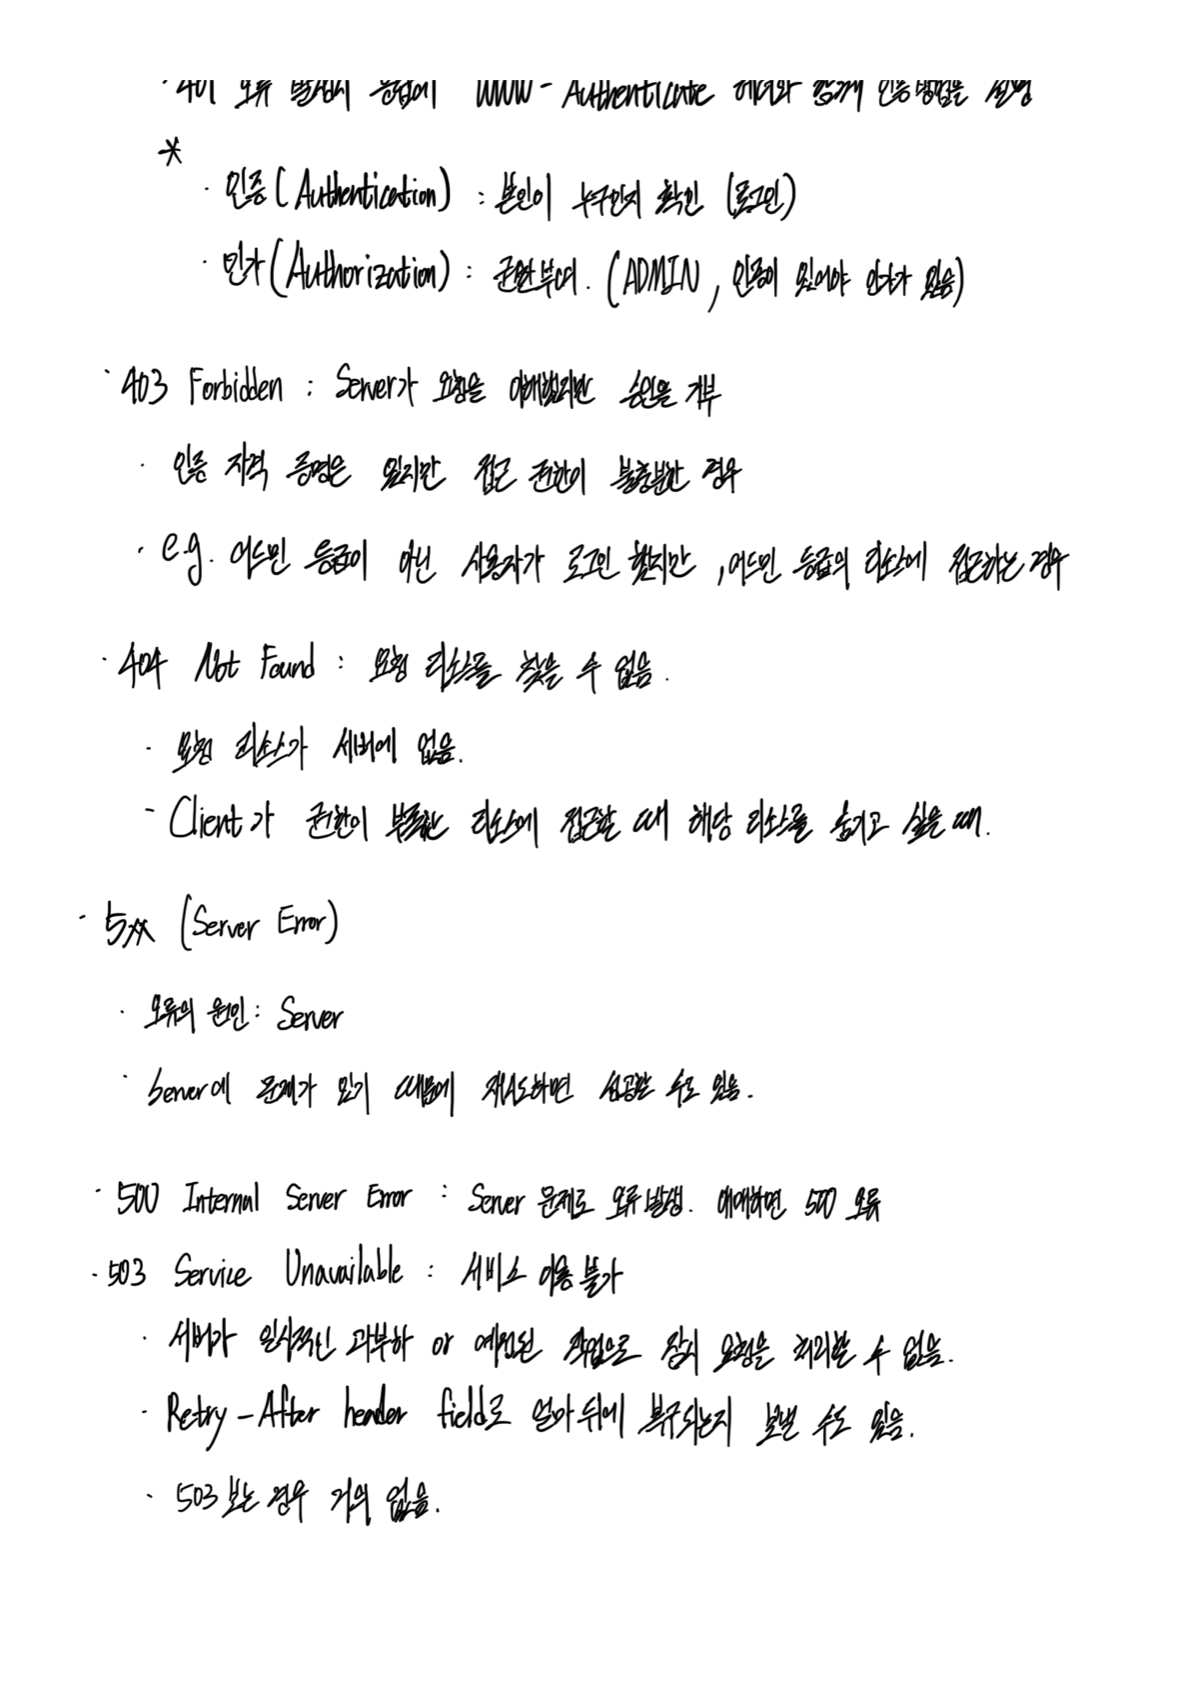 · 401 오류 발생시 응답에 WWW-Authenticate 헤더와 함께 인증 방법을 설명
*
· 인증(Authentication) : 본인이 누구인지 확인 (로그인)
· 인가(Authorization) : 권한부여. (ADMIN, 인증이 있어야 인가가 있음)
· 403 Forbidden : Server가 요청을 이해했지만 승인을 거부
· 인증 자격 증명은 있지만 접근 권한이 불충분한 경우
· e.g. 어드민 등급이 아닌 사용자가 로그인 했지만, 어드민 등급의 리소스에 접근하는 경우
· 404 Not Found : 요청 리소스를 찾을 수 없음.
· 요청 리소스가 서버에 없음.
- Client가 권한이 부족한 리소스에 접근할 때 해당 리소스를 숨기고 싶을 때.
· 5xx (Server Error)
· 오류의 원인 : Server
· Server에 문제가 있기 때문에 재시도하면 성공할 수도 있음.
· 500 Internal Server Error : Server 문제로 오류 발생. 애매하면 500 오류
· 503 Service Unavailable : 서비스 이용 불가
· 서버가 일시적인 과부하 or 예정된 작업으로 잠시 요청을 처리할 수 없음.
· Retry-After header field로 얼마 뒤에 복구되는지 보낼 수도 있음.
· 503 보는 경우 거의 없음.